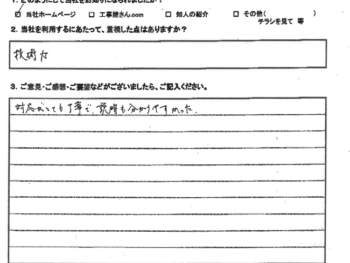 1. どのようにして当社をお知りになられましたか？
☑ 当社ホームページ □ 工事屋さん.com □ 知人の紹介 □ その他( )
チラシを見て 等
2. 当社を利用するにあたって、重視した点はありますか？
技術力
3. ご意見・ご感想・ご要望などがございましたら、ご記入ください。
対応がとても丁寧で、説明も分かりやすかった。